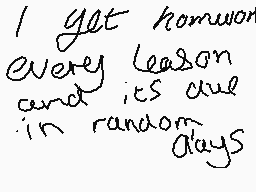 I get homwor
every leason
and its due
in random
days